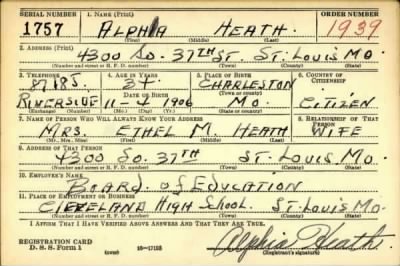 SERIAL NUMBER 1. NAME (Print) ORDER NUMBER
1757 ALPHA HEATH 1939
(First) (Middle) (Last)
2. ADDRESS (Print)
4300 So. 37TH ST. ST. LOUIS MO.
(Number and street or R. F. D. number) (Town) (County) (State)
3. TELEPHONE 4. AGE IN YEARS 5. PLACE OF BIRTH 6. COUNTRY OF CITIZENSHIP
CHARLESTON
DATE OF BIRTH (Town or county)
RIVERSIDE 11-4 1906 MO. CITIZEN
(Exchange) (Number) (Mo.) (Day) (Yr.) (State or country)
7. NAME OF PERSON WHO WILL ALWAYS KNOW YOUR ADDRESS 8. RELATIONSHIP OF THAT PERSON
MRS. ETHEL M. HEATH WIFE
(Mr., Mrs., Miss) (First) (Middle) (Last)
9. ADDRESS OF THAT PERSON
4300 So. 37TH ST. LOUIS MO.
(Number and street or R. F. D. number) (Town) (County) (State)
10. EMPLOYER'S NAME
BOARD of EDUCATION
11. PLACE OF EMPLOYMENT OR BUSINESS
CLEVELAND HIGH SCHOOL ST. LOUIS MO.
(Number and street or R. F. D. number) (Town) (County) (State)
I AFFIRM THAT I HAVE VERIFIED ABOVE ANSWERS AND THAT THEY ARE TRUE.
REGISTRATION CARD
D. S. S. Form 1 (over) Alpha Heath
(Registrant's signature)